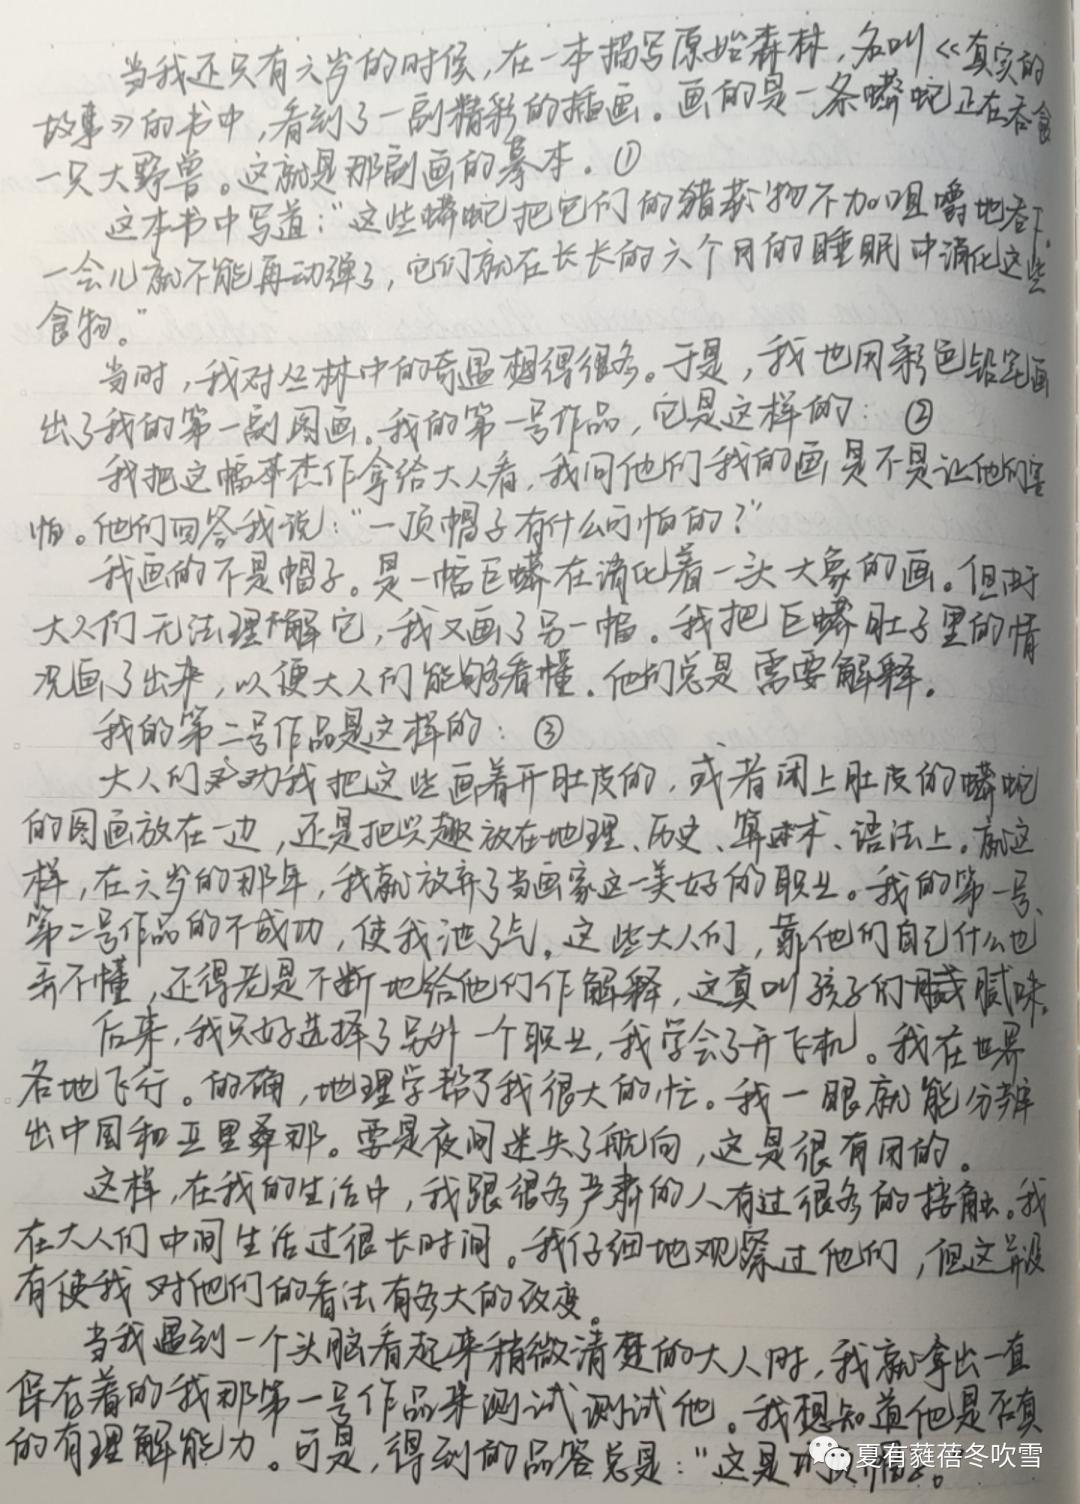 当我还只有六岁的时候，在一本描写原始森林，名叫《真实的
故事》的书中，看到了一副精彩的插画。画的是一条蟒蛇正在吞食
一只大野兽。这就是那副画的摹本。①
这本书中写道：“这些蟒蛇把它们的猎获物不加咀嚼地吞下。
一会儿就不能再动弹了，它们就在长长的六个月的睡眠中消化这些
食物。”
当时，我对丛林中的奇遇想得很多。于是，我也用彩色铅笔画
出了我的第一副图画。我的第一号作品，它是这样的：②
我把这幅杰作拿给大人看，我问他们我的画是不是让他们害
怕。他们回答我说：“一顶帽子有什么可怕的？”
我画的不是帽子。是一幅巨蟒在消化着一头大象的画。但由于
大人们无法理解它，我又画了另一幅。我把巨蟒肚子里的情
况画了出来，以便大人们能够看懂。他们总是需要解释。
我的第二号作品是这样的：③
大人们劝我把这些画着开肚皮的，或者闭上肚皮的蟒蛇
的图画放在一边，还是把兴趣放在地理、历史、算术、语法上。就这
样，在六岁的那年，我就放弃了当画家这一美好的职业。我的第一号、
第二号作品的不成功，使我泄了气。这些大人们，靠他们自己什么也
弄不懂，还得老是不断地给他们作解释，这真叫孩子们腻味。
后来，我只好选择了另外一个职业，我学会了开飞机。我在世界
各地飞行。的确，地理学帮了我很大的忙。我一眼就能分辨
出中国和亚里桑那。要是夜间迷失了航向，这是很有用的。
这样，在我的生活中，我跟很多严肃的人有过很多的接触。我
在大人们中间生活过很长时间。我仔细地观察过他们，但这并没
有使我对他们的看法有多大的改变。
当我遇到一个头脑看起来稍微清楚的大人时，我就拿出一直
保存着的我那第一号作品来测试测试他。我想知道他是否真
的有理解能力。可是，得到的回答总是：“这是顶帽子。”
夏有蕤蓓冬吹雪